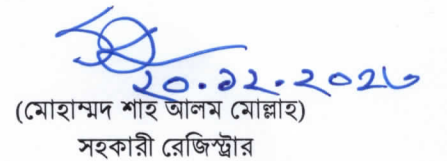 ২০.১২.২০২৩
(মোহাম্মদ শাহ আলম মোল্লাহ)
সহকারী রেজিস্ট্রার